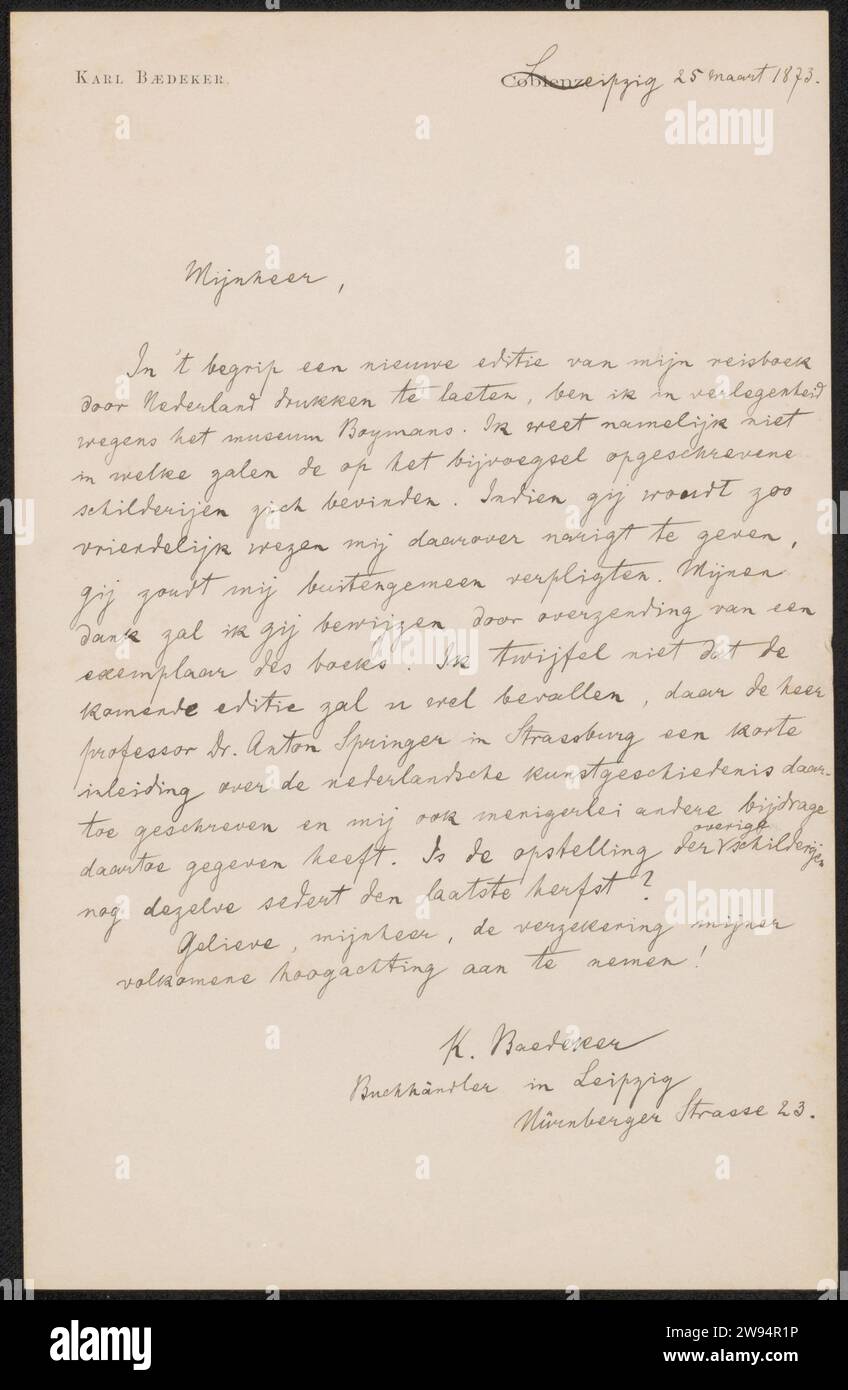 KARL BÆDEKER.
Coblenz Leipzig 25 maart 1873.
Mijnheer,
In 't begrip een nieuwe editie van mijn reisboek
door Nederland drukken te laeten, ben ik in verlegenheid
wegens het museum Boymans. Ik weet namelijk niet
in welke zalen de op het bijvoegsel opgeschrevene
schilderijen zich bevinden. Indien gij woudt zoo
vriendelijk wezen mij daarover narigt te geven,
gij zoudt mij buitengemeen verpligten. Mijnen
dank zal ik gij bewijzen door overzending van een
exemplaar des boeks. Ik twijfel niet dat de
komende editie zal u wel bevallen, daar de heer
professor Dr. Anton Springer in Strassburg een korte
inleiding over de nederlandsche kunstgeschiedenis daar-
toe geschreven en mij ook menigerlei andere bijdrage
daartoe gegeven heeft. Is de opstelling der overige schilderijen
nog dezelve sedert den laatste herfst?
Gelieve, mijnheer, de verzekering mijner
volkomene hoogachting aan te nemen!
K. Baedeker
Buchhändler in Leipzig
Nürnberger Strasse 23.
alamy
Image ID: 2W94R1P
www.alamy.com